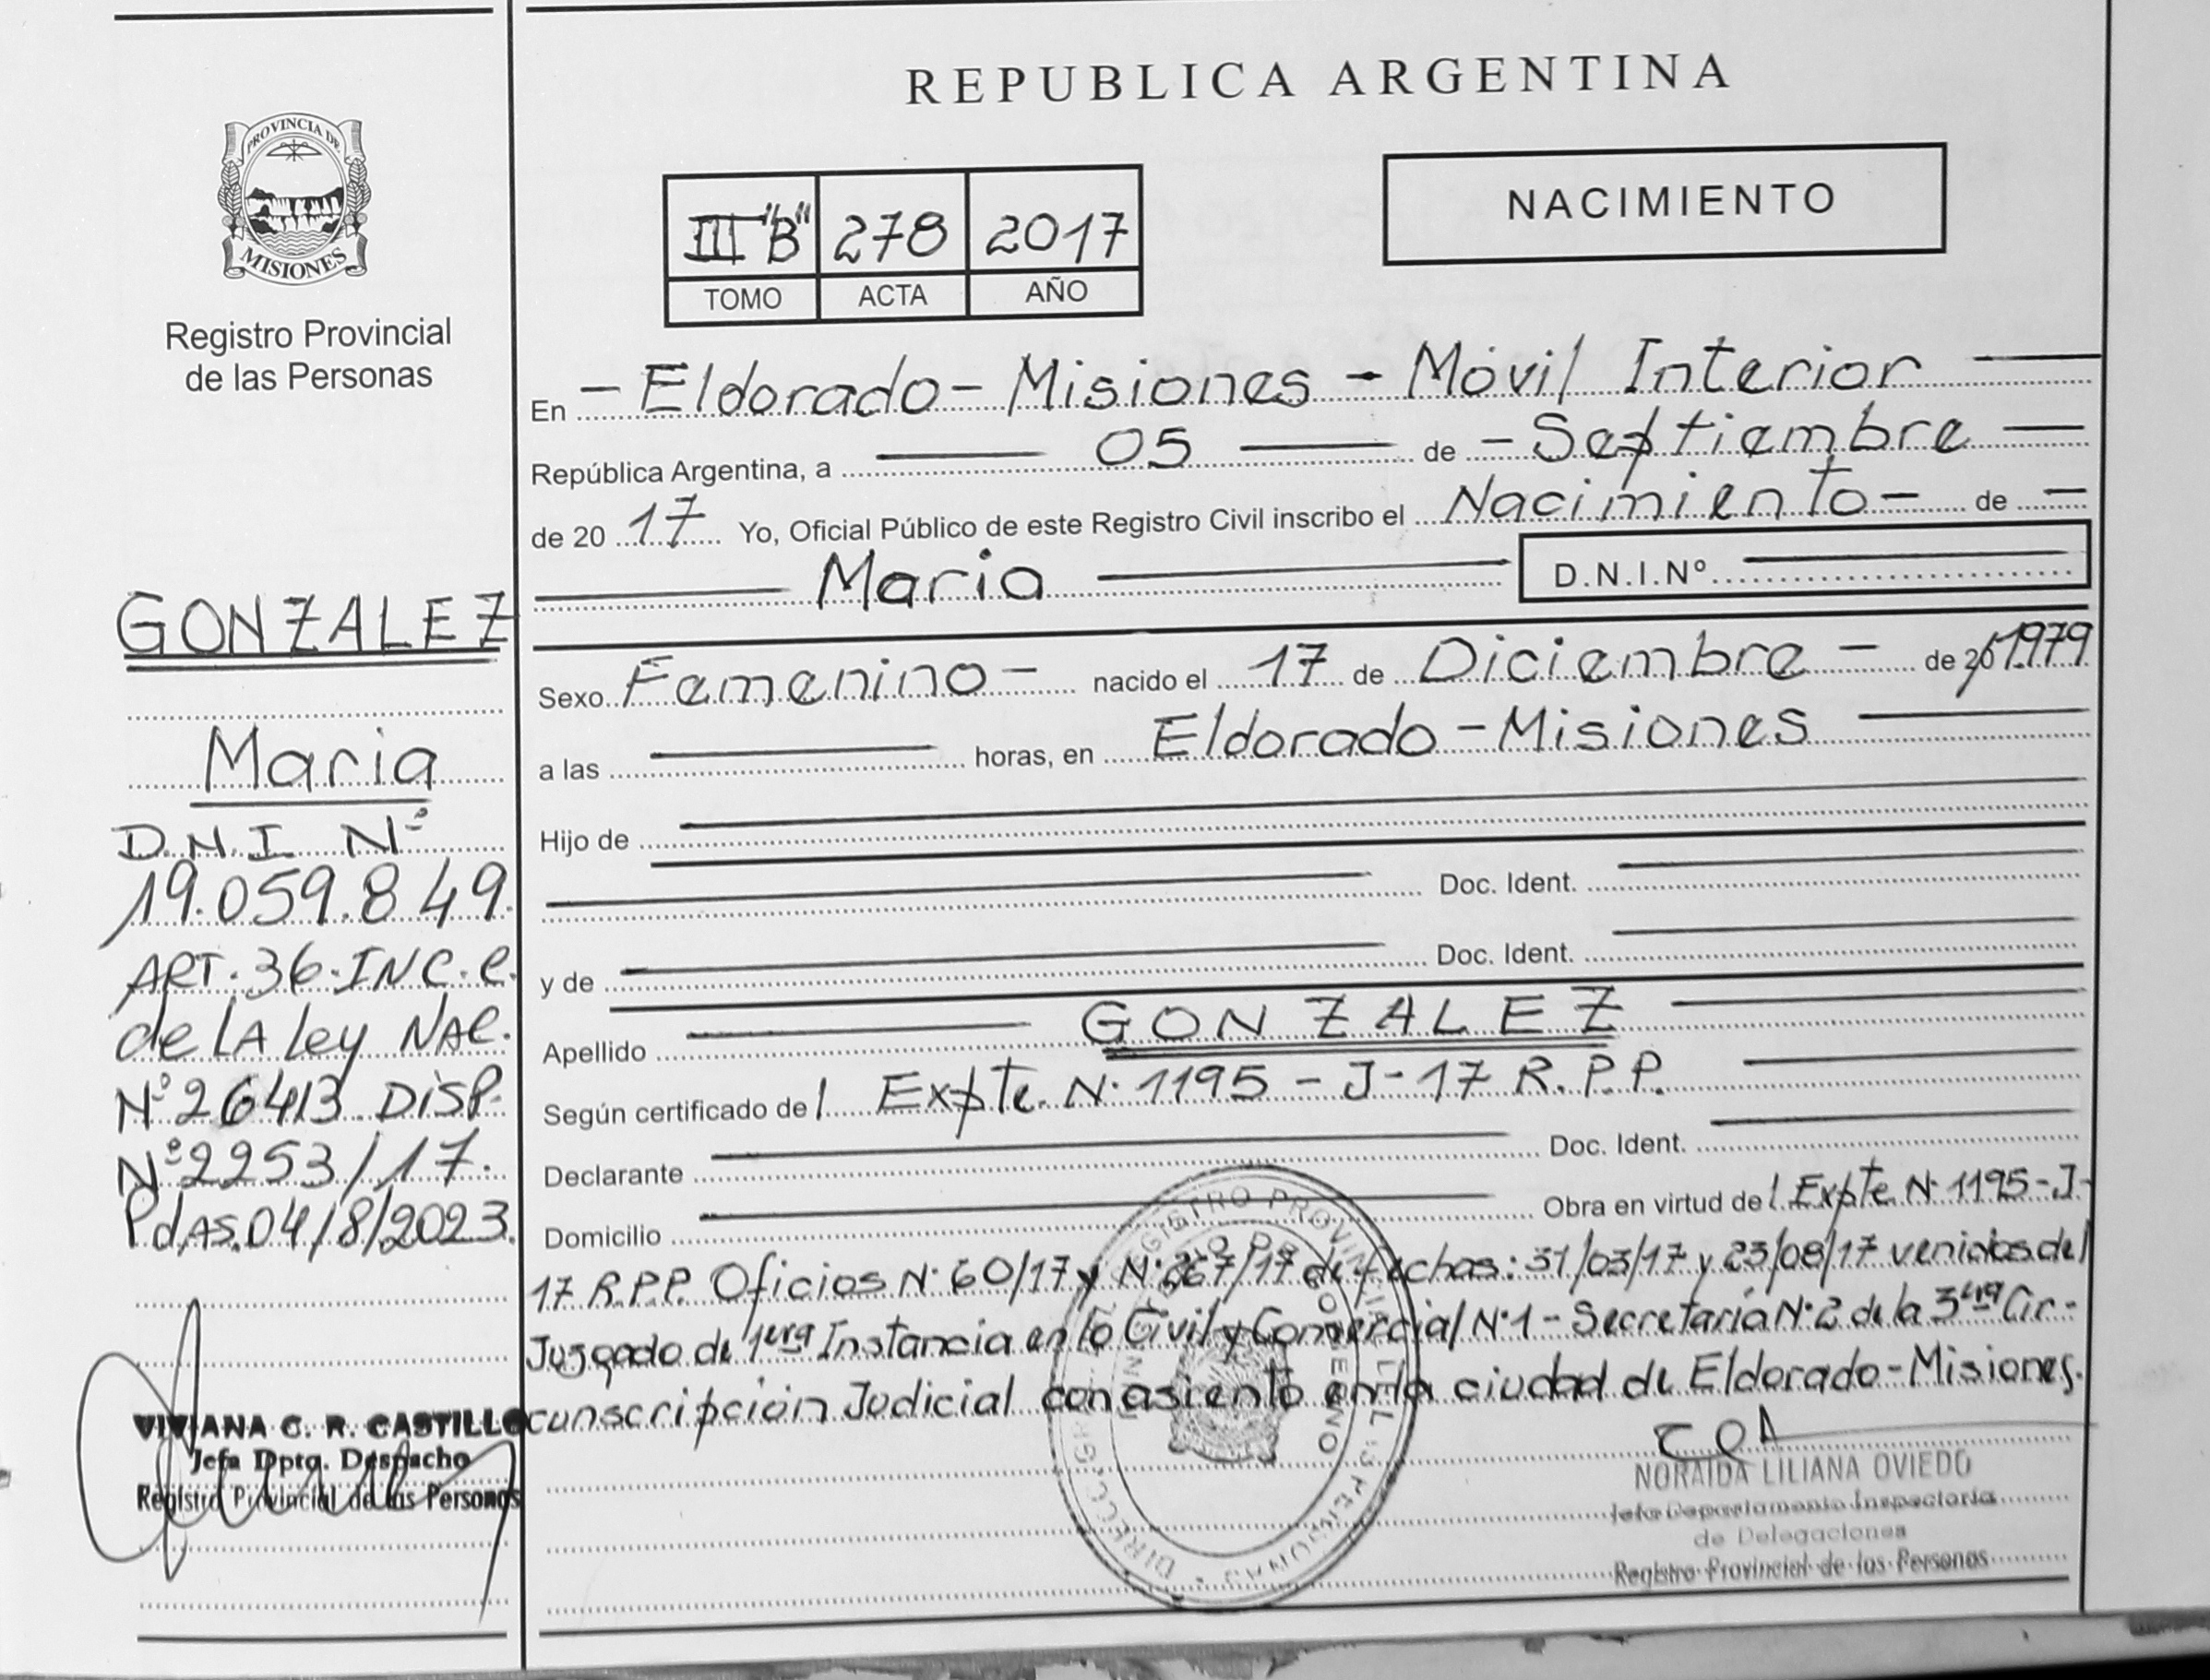 REPUBLICA ARGENTINA
PROVINCIA DE
MISIONES
Registro Provincial
de las Personas
III "B" 278 2017
TOMO ACTA AÑO
NACIMIENTO
En - Eldorado - Misiones - Móvil Interior
República Argentina, a 05 de - Septiembre
de 20 17 Yo, Oficial Público de este Registro Civil inscribo el Nacimiento - de -
Maria D.N.I.Nº
Sexo Femenino - nacido el 17 de Diciembre - de 20 1979
a las horas, en Eldorado - Misiones
Hijo de
Doc. Ident.
y de Doc. Ident.
Apellido GONZALEZ
Según certificado de/ Expte. N· 1195 - J - 17 R.P.P.
Declarante Doc. Ident.
Domicilio Obra en virtud de/ Expte N· 1195-J-
17 R.P.P. Oficios N· 60/17 y N· 267/17 de fechas: 31/03/17 y 23/08/17 venidos del
Juzgado de 1era Instancia en lo Civil y Comercial N·1 - Secretaría N·2 de la 3era Cir-
cunscripción Judicial con asiento en la ciudad de Eldorado - Misiones.
NORAIDA LILIANA OVIEDO
Jefa Departamento Inspectoría
de Delegaciones
Registro Provincial de las Personas
GONZALEZ
Maria
D.N.I. Nº
19.059.849.
ART. 36. INC. C.
de LA Ley NAC.
Nº 26413 DISP.
Nº 2253/17.
PdAS. 04/8/2023.
VIVIANA C. R. CASTILLO
Jefa Dpto. Despacho
Registro Provincial de las Personas